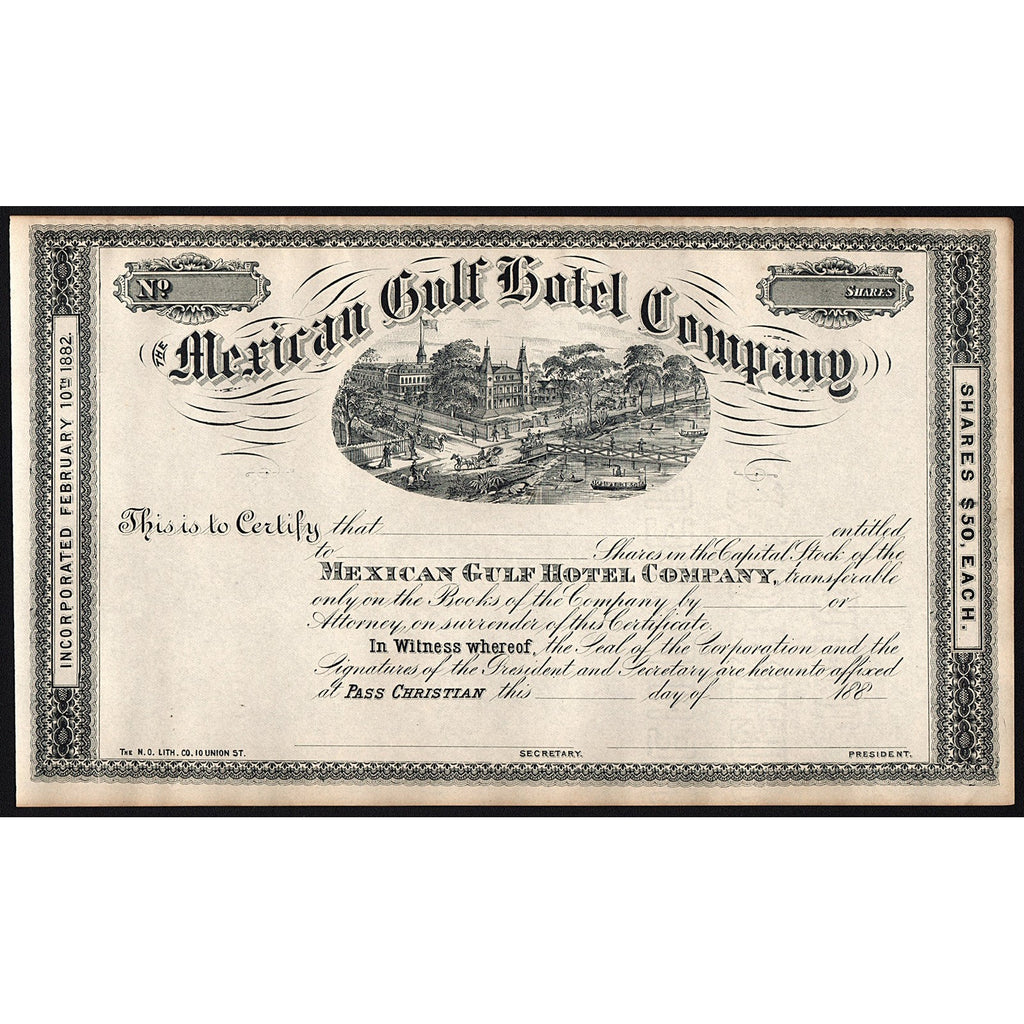 Nº
SHARES
THE Mexican Gulf Hotel Company
INCORPORATED FEBRUARY 10TH 1882.
SHARES $50, EACH.
This is to Certify that entitled
to Shares in the Capital Stock of the
MEXICAN GULF HOTEL COMPANY, transferable
only on the Books of the Company by or
Attorney, on surrender of this Certificate.
In Witness whereof, the Seal of the Corporation and the
Signatures of the President and Secretary are hereunto affixed
at PASS CHRISTIAN this day of 188
THE N.O. LITH. CO. 10 UNION ST.
SECRETARY.
PRESIDENT.